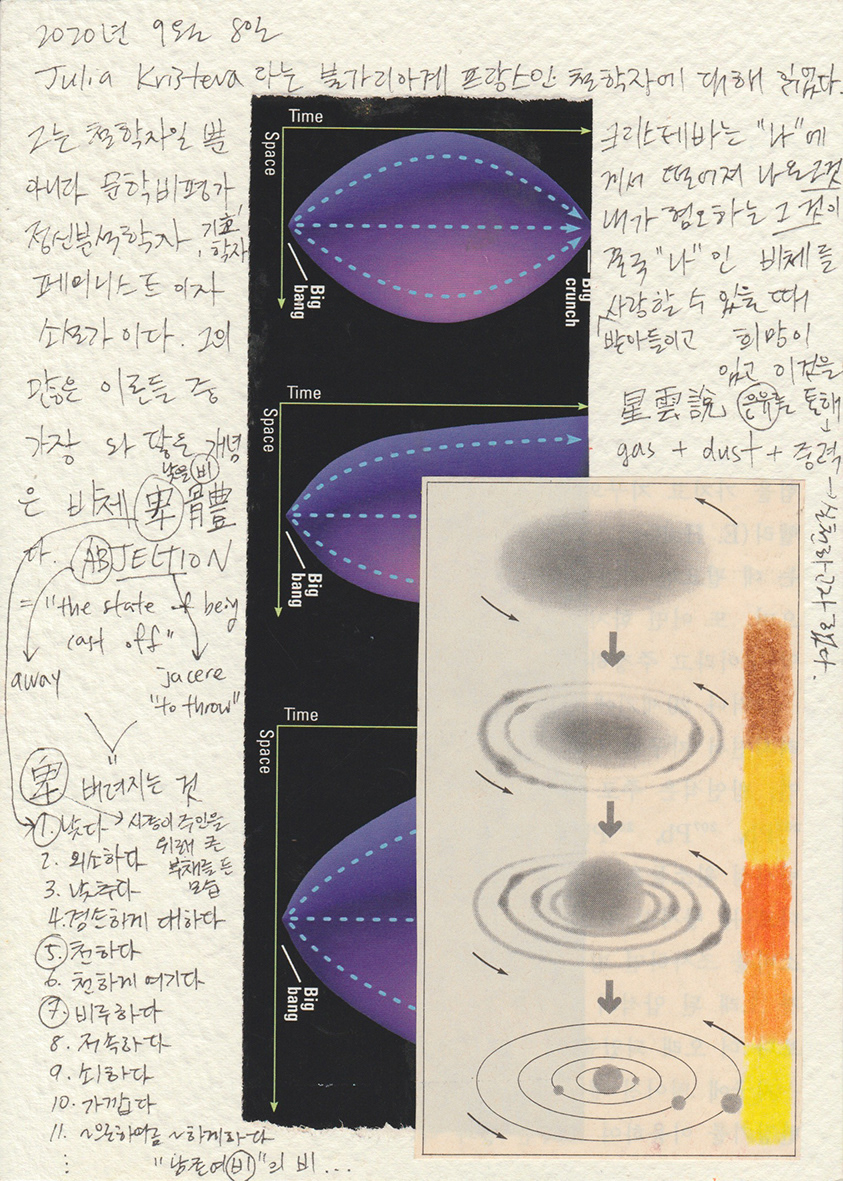 2020년 9월 8일
Julia Kristeva 라는 불가리아계 프랑스인 철학자에 대해 읽었다.
그는 철학자일 뿐
아니라 문학비평가,
정신분석학자, 기호학자
페미니스트이자
소설가이다. 그의
많은 이론들 중
가장 와 닿는 개념
낮을 비
은 비체 卑體
다. ABJECTION
= "the state of being
cast off"
away
jacere
"to throw"
卑 버려지는 것
1. 낮다 → 시종이 주인을
위해 큰
부채를 든
모습
2. 왜소하다
3. 낮추다
4. 겸손하게 대하다
5. 천하다
6. 천하게 여기다
7. 비루하다
8. 저속하다
9. 쇠하다
10. 가깝다
11. ~으로 하여금 ~하게 하다
"남존여비"의 비...
크리스테바는 "나"에
게서 떨어져 나온 그것
내가 혐오하는 그것이
결국 "나"인 비체를
사랑할 수 있을 때
받아들이고 희망이
있고 이것을
星雲說 은유를 통해
gas + dust + 중력
Time
Space
Big bang
Big crunch
Time
Space
Big bang
Time
Space
Big bang